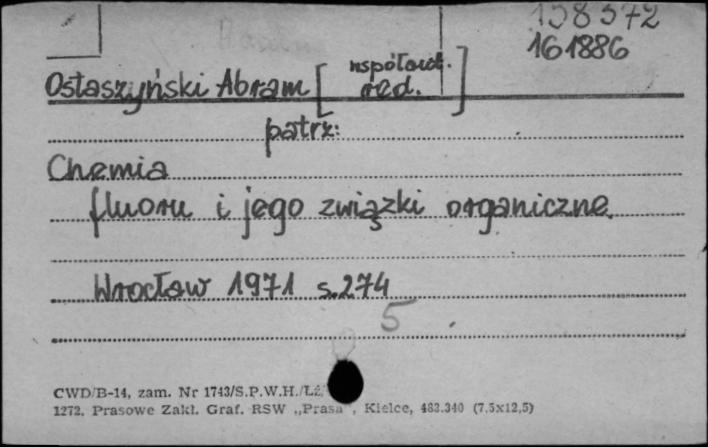 158572
161886
Ostaszyński Abram [współaut. red.]
patrz:
Chemia
fluoru i jego związki organiczne.
Wrocław 1971 s.274
5
CWD/B-14, zam. Nr 1743/S.P.W.H./Łź.
1272. Prasowe Zakł. Graf. RSW „Prasa", Kielce, 483.340 (7,5x12,5)